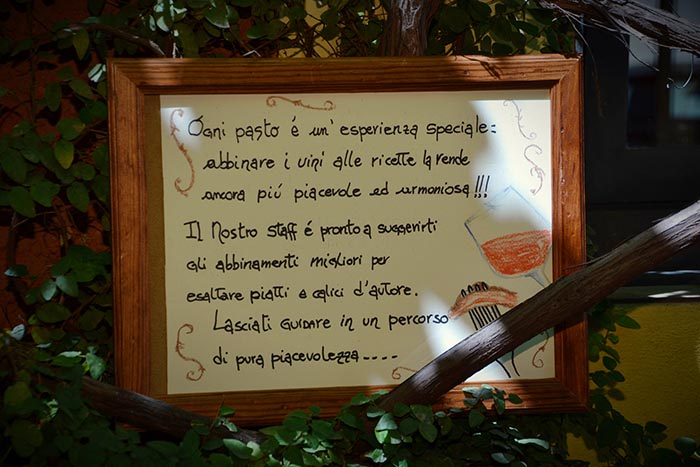 Ogni pasto é un'esperienza speciale:
abbinare i vini alle ricette la rende
ancora piú piacevole ed armoniosa!!!
Il Nostro staff é pronto a suggerirti
gli abbinamenti migliori per
esaltare piatti e calici d'autore.
Lasciati guidare in un percorso
di pura piacevolezza....